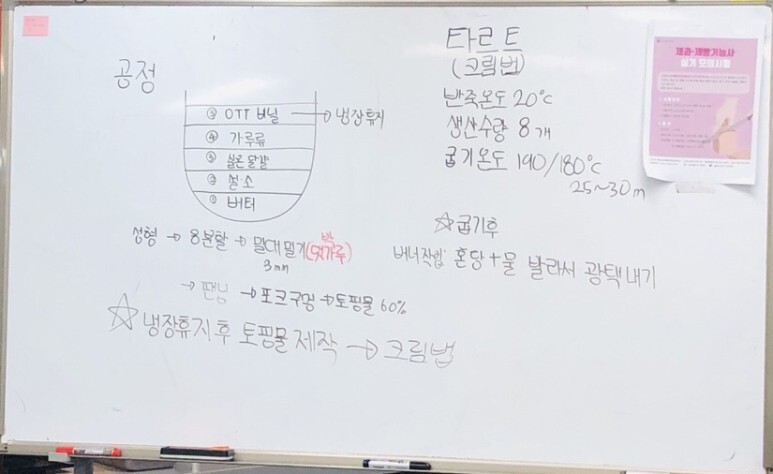 공정
⑤ OTT 비닐 → 냉장휴지
④ 가루류
③ 실온물달걀
② 설·소
① 버터
성형 → 8분할 → 밀대밀기 (덧가루) 박
3mm
→ 팬닝 → 포크구멍 → 토핑물 60%
☆ 냉장휴지 후 토핑물 제작 → 크림법
타르트
(크림법)
반죽온도 20°C
생산수량 8개
굽기온도 190/180°C
25~30m
☆굽기후
혼당 + 물 발라서 광택내기
제과·제빵기능사
실기 모의시험